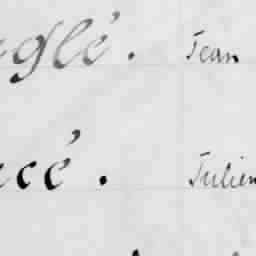 glé. Jean
cé. Julien